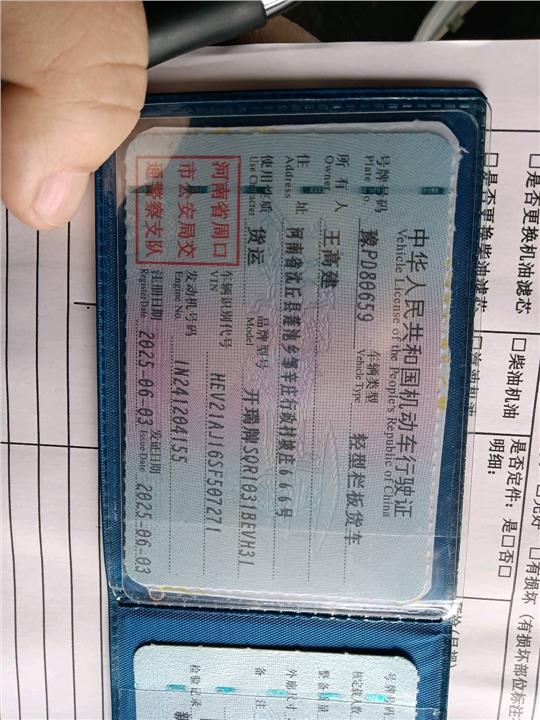 中华人民共和国机动车行驶证
Vehicle License of the People's Republic of China
号牌号码 豫PD80659 车辆类型 轻型栏板货车
Plate No. Vehicle Type
所有人 王高建
Owner
住址 河南省沈丘县莲池乡邹辛庄行政村坡庄666号
Address
使用性质 货运 品牌型号 开瑞牌SQR1031BEVH31
Use Character Model
河南省周口
市公安局交
通警察支队
车辆识别代号 HEV21AJ16SF507271
VIN
发动机号码 1N241204155
Engine No.
注册日期 2025-06-03 发证日期 2025-06-03
Register Date Issue Date
号牌号码
核定载人数
整备质量
外廓尺寸
备注
检验记录
□是否更换机油滤芯 □柴油机油
□是否更换柴油滤芯
是否定件：是□否□
明细：
□完好 □有损坏（有损坏部位标注